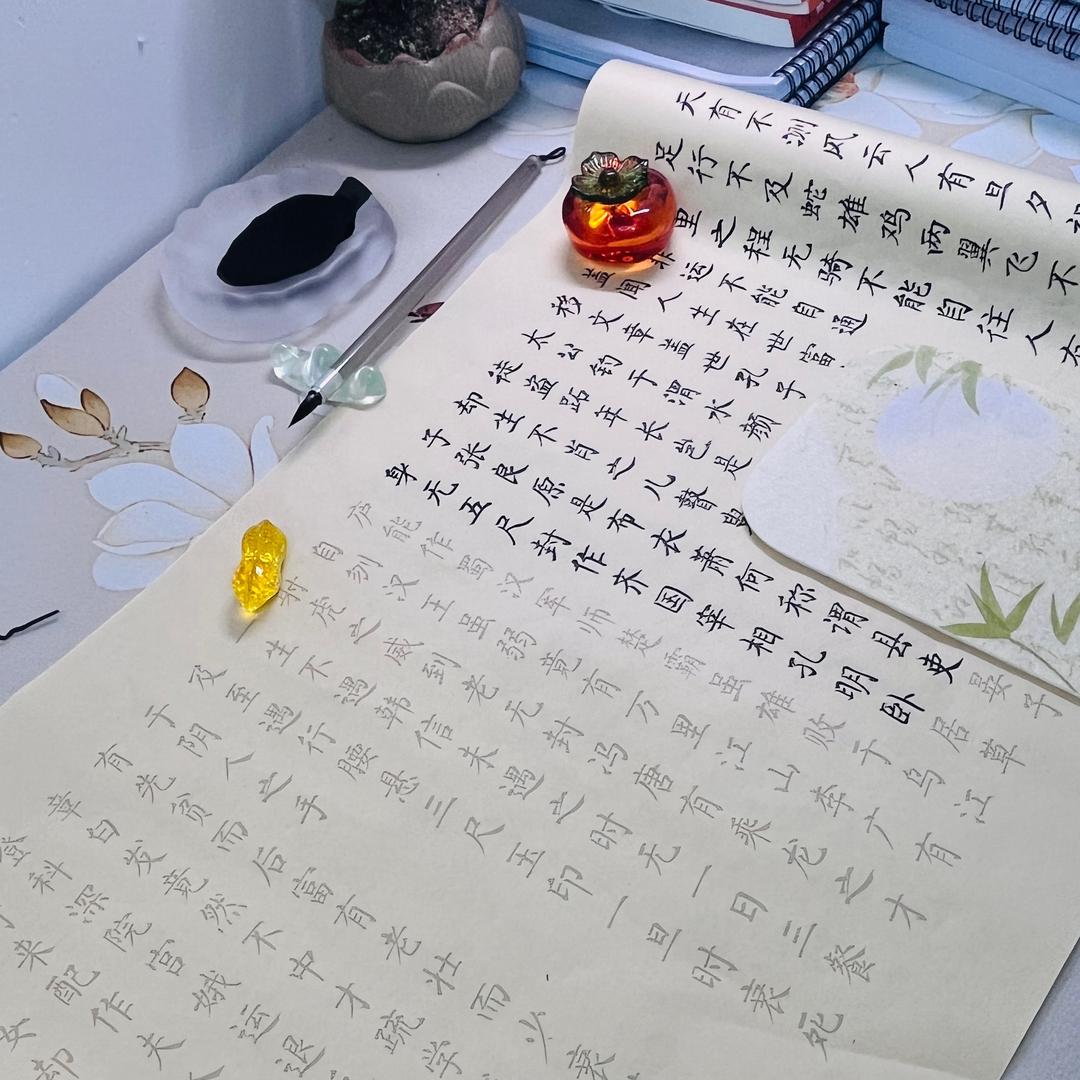 天有不测风云人有旦夕
足行不及蛇雄鸡两翼飞不
里之程无骑不能自往人有
非运不能自通
盖闻人生在世富
移文章盖世孔子
太公钓于渭水颜
徒盗跖年长岂是
却生不肖之儿瞽叟
子张良原是布衣萧何称谓县吏晏子
身无五尺封作齐国宰相孔明卧居草
庐能作蜀汉军师楚霸虽雄败于乌江
自刎汉王虽弱竟有万里江山李广有
射虎之威到老无封冯唐有乘龙之才
生不遇韩信未遇之时无一日三餐
及至遇行腰悬三尺玉印一旦时衰死
于阴人之手
有先贫而后富有老壮而少衰
章白发竟然不中才疏学
登科深院宫娥运退
来配作夫
女却